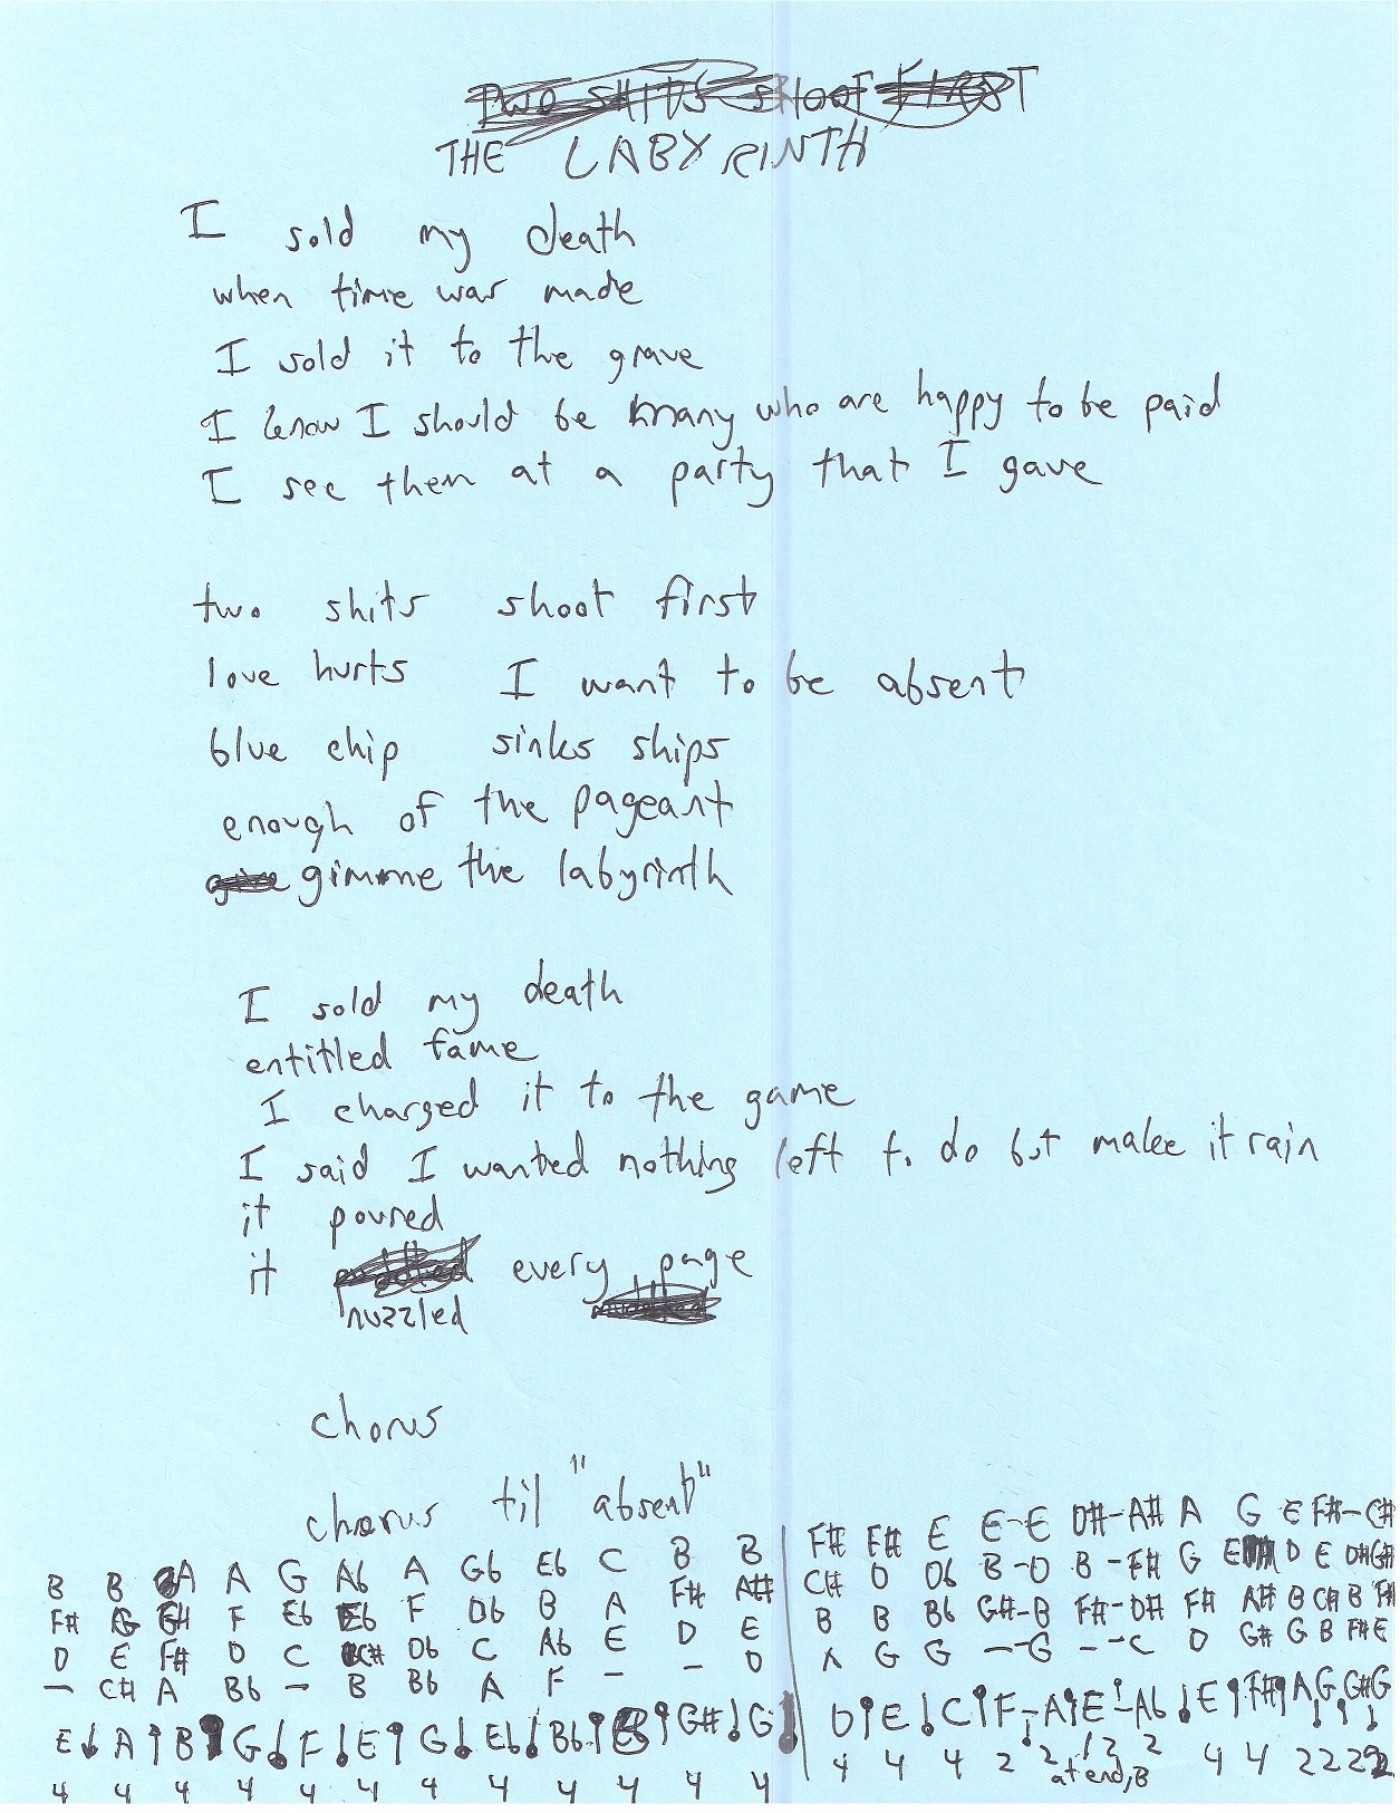 TWO SHITS SHOOT FIRST
THE LABYRINTH
I sold my death
when time was made
I sold it to the grave
I know I should be many who are happy to be paid
I see them at a party that I gave
two shits shoot first
love hurts I want to be absent
blue chip sinks ships
enough of the pageant
gimme the labyrinth
I sold my death
entitled fame
I charged it to the game
I said I wanted nothing left to do but make it rain
it poured
it every page
nuzzled
chorus
chorus til "absent"
B B A A G Ab A Gb Eb C B B
F# G F Eb Eb F Db B A F# A#
D E F# D C C# Db C Ab E D E
– C# A Bb – B Bb A F – – D
E A B G F E G Eb Bb G# G
4 4 4 4 4 4 4 4 4 4 4 4
F# F# E E-E D#-A# A G E F#-C#
C# D Db B-D B-F# G E D E D# G#
B B Bb G#-B F#-D# F# A# B C# B F#
A G G –-G –-C D G# G B F# E
D E C F-A E-Ab E F# A G G# G
4 4 4 2 2 2 2 4 4 2 2 2 2
at end, B